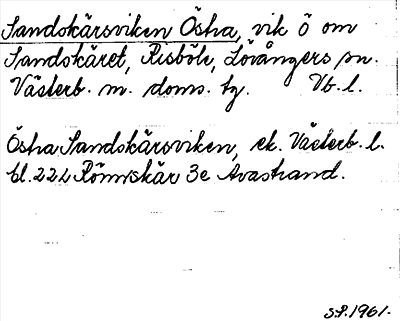 Sandskärsviken Östra, vik ö om
Sandskäret, Risböle, Lövångers sn.
Västerb. m. doms. tg. Vb. l.
Östra Sandskärsviken, ek. Västerb. l.
bl. 222 Rönnskär 3e Avastrand.
S.P. 1961.